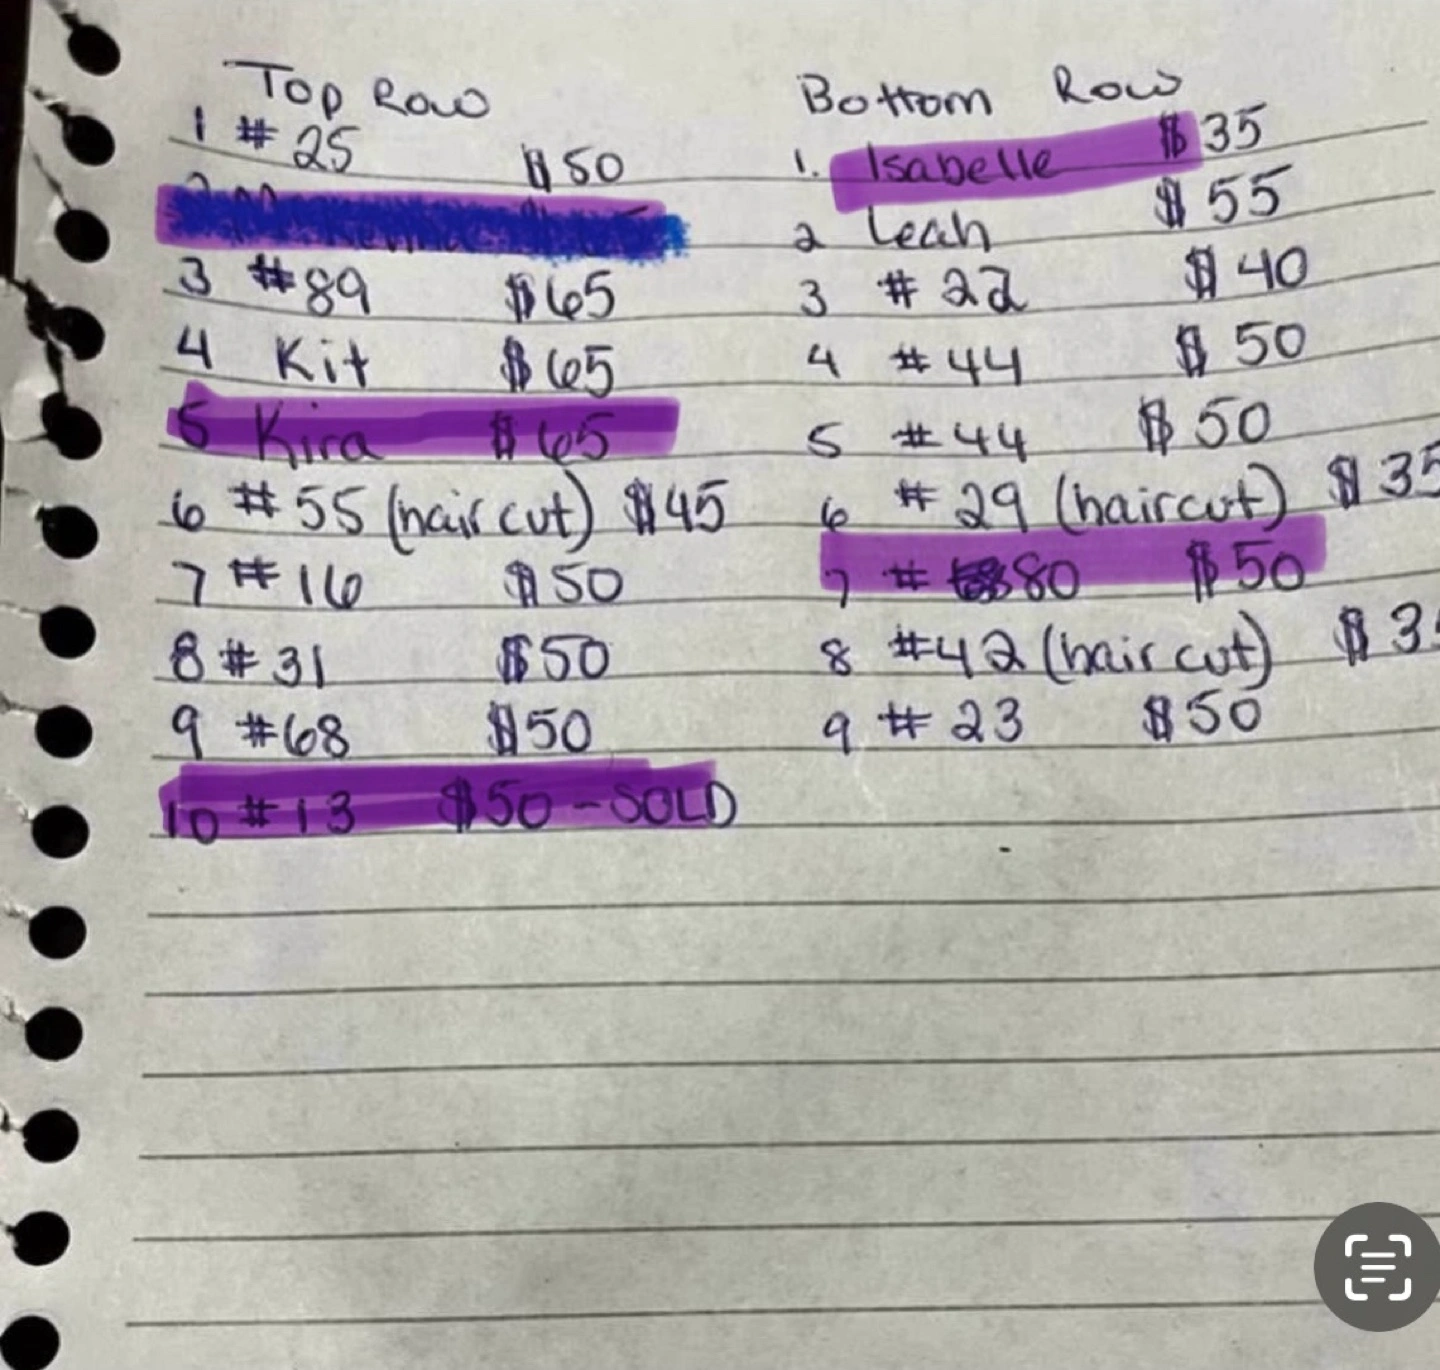 Top Row
1 # 25 $50
3 #89 $65
4 Kit $65
5 Kira $65
6 #55 (hair cut) $45
7 #16 $50
8 #31 $50
9 #68 $50
10 #13 $50 - SOLD
Bottom Row
1. Isabelle $35
2 Leah $55
3 #22 $40
4 #44 $50
5 #44 $50
6 #29 (haircut) $35
7 # 80 $50
8 #42 (hair cut) $3
9 #23 $50